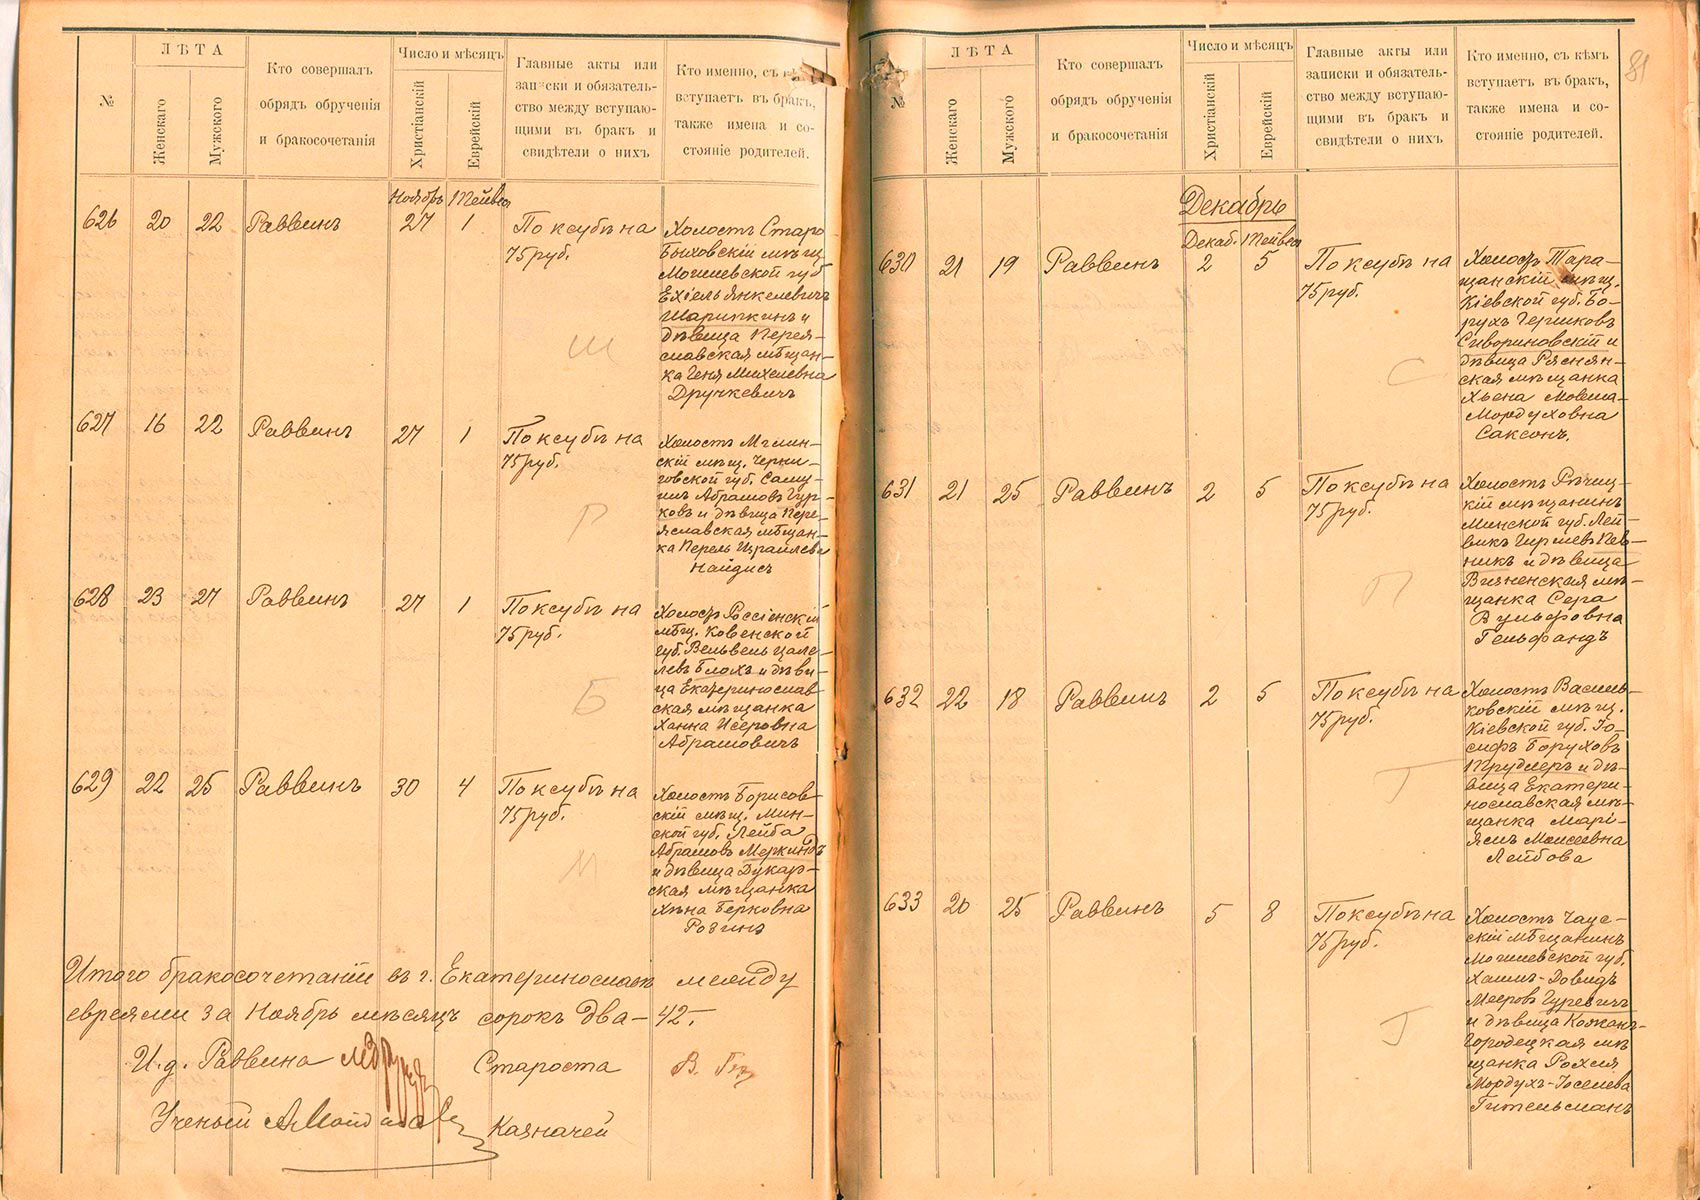 ЛѢТА
Число и мѣсяцъ
№
Женскаго
Мужского
Кто совершалъ
обрядъ обрученія
и бракосочетанія
Христіанскій
Еврейскій
Главные акты или
записки и обязатель-
ство между вступаю-
щими въ бракъ и
свидѣтели о нихъ
Кто именно, съ кѣмъ
вступаетъ въ бракъ,
также имена и со-
стояніе родителей.
Ноябрь Тейвеса
626 20 22 Раввинъ 27 1
По ксубѣ на
75 руб.
Холостъ Старо
Быховскій мѣщ.
Могилевской губ.
Ехіель Янкелевичъ
Шарипкинъ и
дѣвица Перея-
славская мѣщан-
ка Геня Михелевна
Дручкевичъ
Ш
627 16 22 Раввинъ 27 1
По ксубѣ на
75 руб.
Холостъ Мглин-
скій мѣщ. Черни-
говской губ. Саму-
илъ Абрамовъ Гур-
ковъ и дѣвица Пере-
яславская мѣщан-
ка Перель Израилева
Найдисъ
Г
628 23 27 Раввинъ 27 1
По ксубѣ на
75 руб.
Холостъ Россіенскій
мѣщ. Ковенской
губ. Вельвель Цале-
левъ Блохъ и дѣви-
ца Екатеринослав-
ская мѣщанка
Ханна Исеровна
Абрамовичъ
Б
629 22 25 Раввинъ 30 4
По ксубѣ на
75 руб.
Холостъ Борисов-
скій мѣщ. Мин-
ской губ. Лейба
Абрамовъ Меркиндъ
и дѣвица Дукор-
ская мѣщанка
Хьна Берковна
Розинъ
М
Итого бракосочетаній въ г. Екатеринославѣ между
евреями за Ноябрь мѣсяцъ сорокъ два- 42.-
И.д. Раввина
Староста
Ученый
Казначей
81
ЛѢТА
Число и мѣсяцъ
№
Женскаго
Мужского
Кто совершалъ
обрядъ обрученія
и бракосочетанія
Христіанскій
Еврейскій
Главные акты или
записки и обязатель-
ство между вступаю-
щими въ бракъ и
свидѣтели о нихъ
Кто именно, съ кѣмъ
вступаетъ въ бракъ,
также имена и со-
стояніе родителей.
Декабрь
Декаб. Тейвеса
630 21 19 Раввинъ 2 5
По ксубѣ на
75 руб.
Холостъ Тара-
щанскій мѣщ.
Кіевской губ. Бо-
рухъ Гершковъ
Сивориновскій и
дѣвица Ряснян-
ская мѣщанка
Хьена Мовша-
Мордуховна
Саксонъ.
С
631 21 25 Раввинъ 2 5
По ксубѣ на
75 руб.
Холостъ Рѣчиц-
кій мѣщанинъ
Минской губ. Лей-
викъ Гиршевъ Пев-
никъ и дѣвица
Визненская мѣ-
щанка Сера
Вульфовна
Гельфандъ
П
632 22 18 Раввинъ 2 5
По ксубѣ на
75 руб.
Холостъ Василь-
ковскій мѣщ.
Кіевской губ. Іо-
сифъ Боруховъ
Трудлеръ и дѣ-
вица Екатери-
нославская мѣ-
щанка Марі-
ямъ Моисеевна
Лейбова
Т
633 20 25 Раввинъ 5 8
По ксубѣ на
75 руб.
Холостъ Чаус-
скій мѣщанинъ
Могилевской губ.
Хаимъ-Довидъ
Мееровъ Гуревичъ
и дѣвица Кожанъ-
Городецкая мѣ-
щанка Рохля
Мордухъ-Іоселева
Гительманъ
Г